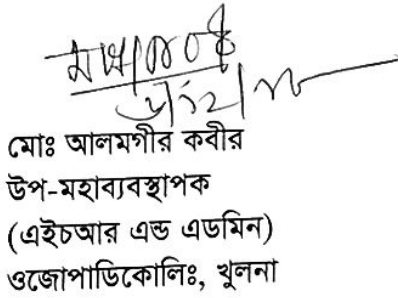 মোঃ আলমগীর কবীর
উপ-মহাব্যবস্থাপক
(এইচআর এন্ড এডমিন)
ওজোপাডিকোলিঃ, খুলনা